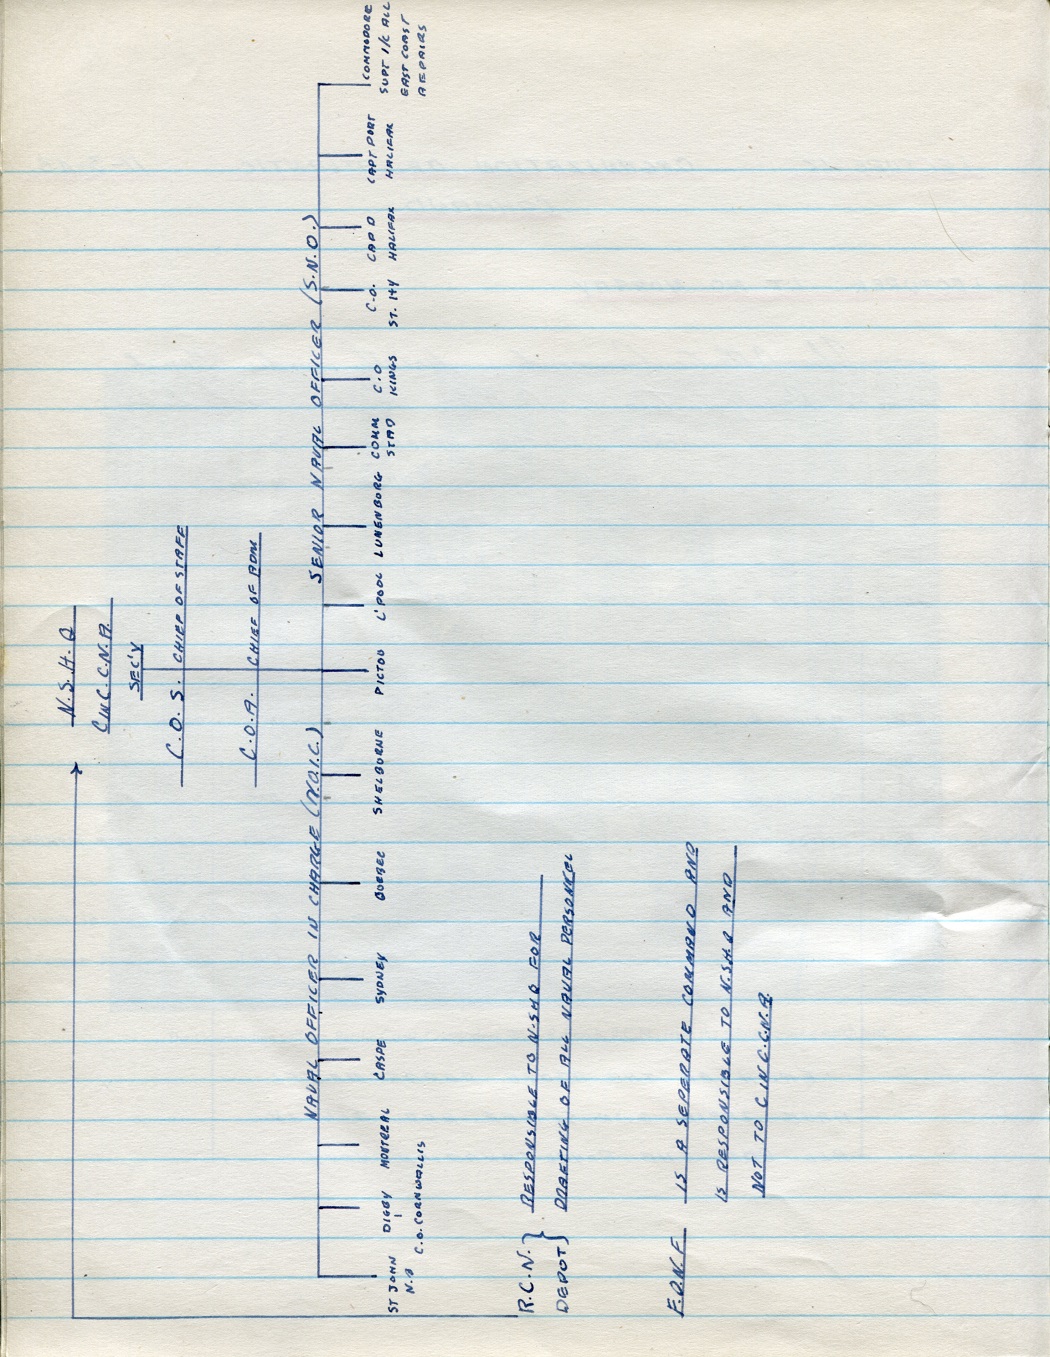 N.S.H.Q
C IN C. C.N.A.
SEC'Y
C.O.S. CHIEF OF STAFF
C.O.A. CHIEF OF ADM
NAVAL OFFICER IN CHARGE (N.O.I.C.)
SENIOR NAVAL OFFICER (S.N.O.)
ST JOHN
N.B
DIGBY
C.O. CORNWALLIS
MONTREAL
GASPE
SYDNEY
QUEBEC
SHELBURNE
PICTOU
L'POOL
LUNENBORG
COMM
STAD
C.O
KINGS
C.O.
ST. HY
CAP D
HALIFAX
CAPT PORT
HALIFAX
COMMODORE
SUPT I/C ALL
EAST COAST
REPAIRS
R.C.N. } RESPONSIBLE TO N.SHQ FOR
DEPOT } DRAFTING OF ALL NAVAL PERSONEL
F.O.N.F IS A SEPERATE COMMAND AND
IS RESPONSIBLE TO N.S.H.Q AND
NOT TO C IN C.C.N.A.